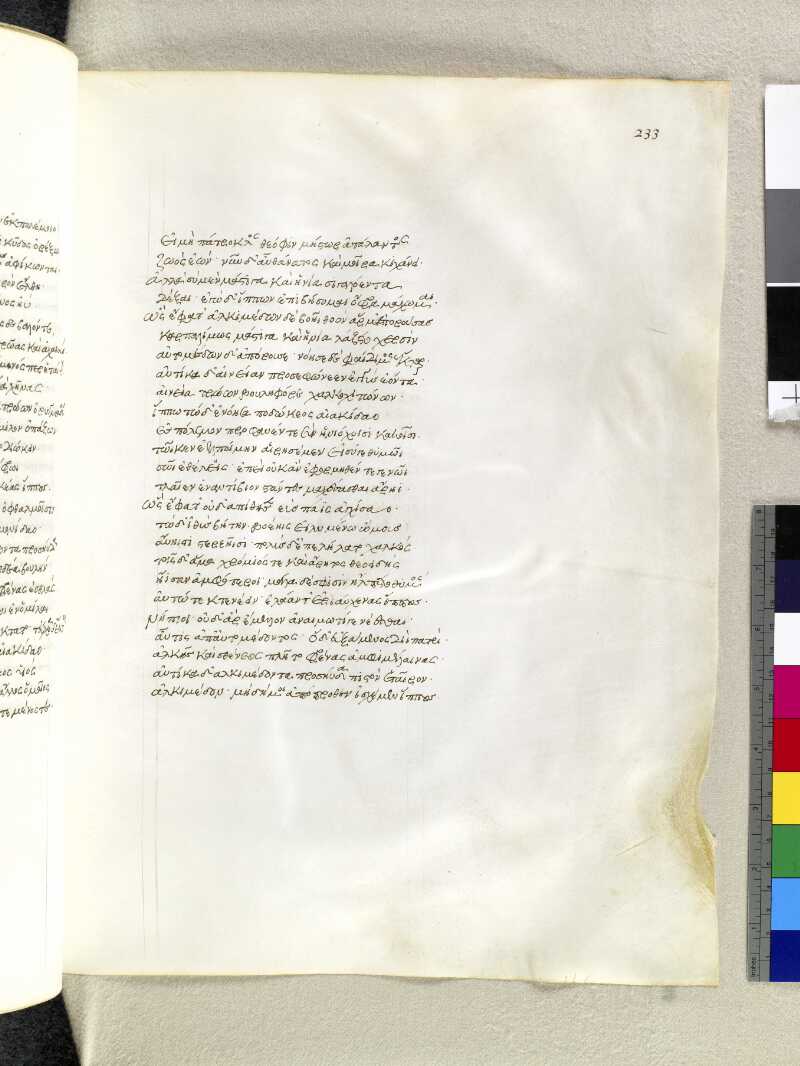 233
Εἰ μὴ πάτροκλος θεόφιν μήστωρ ἀτάλαντος
ζωὸς ἐών· νῦν δ' αὖ θάνατος καὶ μοῖρα κιχάνει·
ἀλλὰ σὺ μὲν μάστιγα καὶ ἡνία σιγαλόεντα
δέξαι· ἐγὼ δ' ἵππων ἐπιβήσομαι ὄφρα μάχωμαι·
ὣς ἔφατ' ἀλκιμέδων δὲ βοηθόον ἅρμ' ἐπορούσας
καρπαλίμως μάστιγα καὶ ἡνία λάζετο χερσίν
αὐτομέδων δ' ἀπόρουσε· νόησε δὲ φαίδιμος ἕκτωρ·
αὐτίκα δ' αἰνείαν προσεφώνεεν ἐγγὺς ἐόντα·
αἰνεία τρώων βουληφόρε χαλκοχιτώνων·
ἵππω τώδ' ἐνόησα ποδώκεος αἰακίδαο
ἐς πόλεμον προφανέντε σὺν ἡνιόχοισι κακοῖσι·
τώ κεν ἐελποίμην αἱρησέμεν εἰ σύ γε θυμῶι
σῶι ἐθέλεις· ἐπεὶ οὐκ ἂν ἐφορμηθέντέ γε νῶϊ
τλαῖεν ἐναντίβιον στάντες μαχέσασθαι ἄρηϊ·
ὣς ἔφατ' οὐδ' ἀπίθησεν ἐῢς πάϊς ἀγχίσαο·
τὼ δ' ἰθὺς βήτην βοέηις εἰλυμένω ὤμους
αὔηισι στερεῆισι· πολὺς δ' ἐπελήλατο χαλκός
τοῖσι δ' ἅμα χρομίος τε καὶ ἄρητος θεοειδὴς
ἤϊσαν ἀμφότεροι· μάλα δέ σφισιν ἤλπετο θυμὸς
αὐτώ τε κτενέειν· ἐλάαν τ' ἐριαύχενας ἵππους·
νήπιοι· οὐδ' ἄρ' ἔμελλον ἀναιμωτί γε νέεσθαι
αὖτις ἀπ' αὐτομέδοντος· ὃ δ' εὐξάμενος Διὶ πατρί·
ἀλκῆς καὶ σθένεος πλῆτο φρένας ἀμφιμελαίνας·
αὐτίκα δ' ἀλκιμέδοντα προσηύδα πιστὸν ἑταῖρον·
ἀλκίμεδον· μὴ δή μοι ἀπόπροθεν ἰσχέμεν ἵππους·